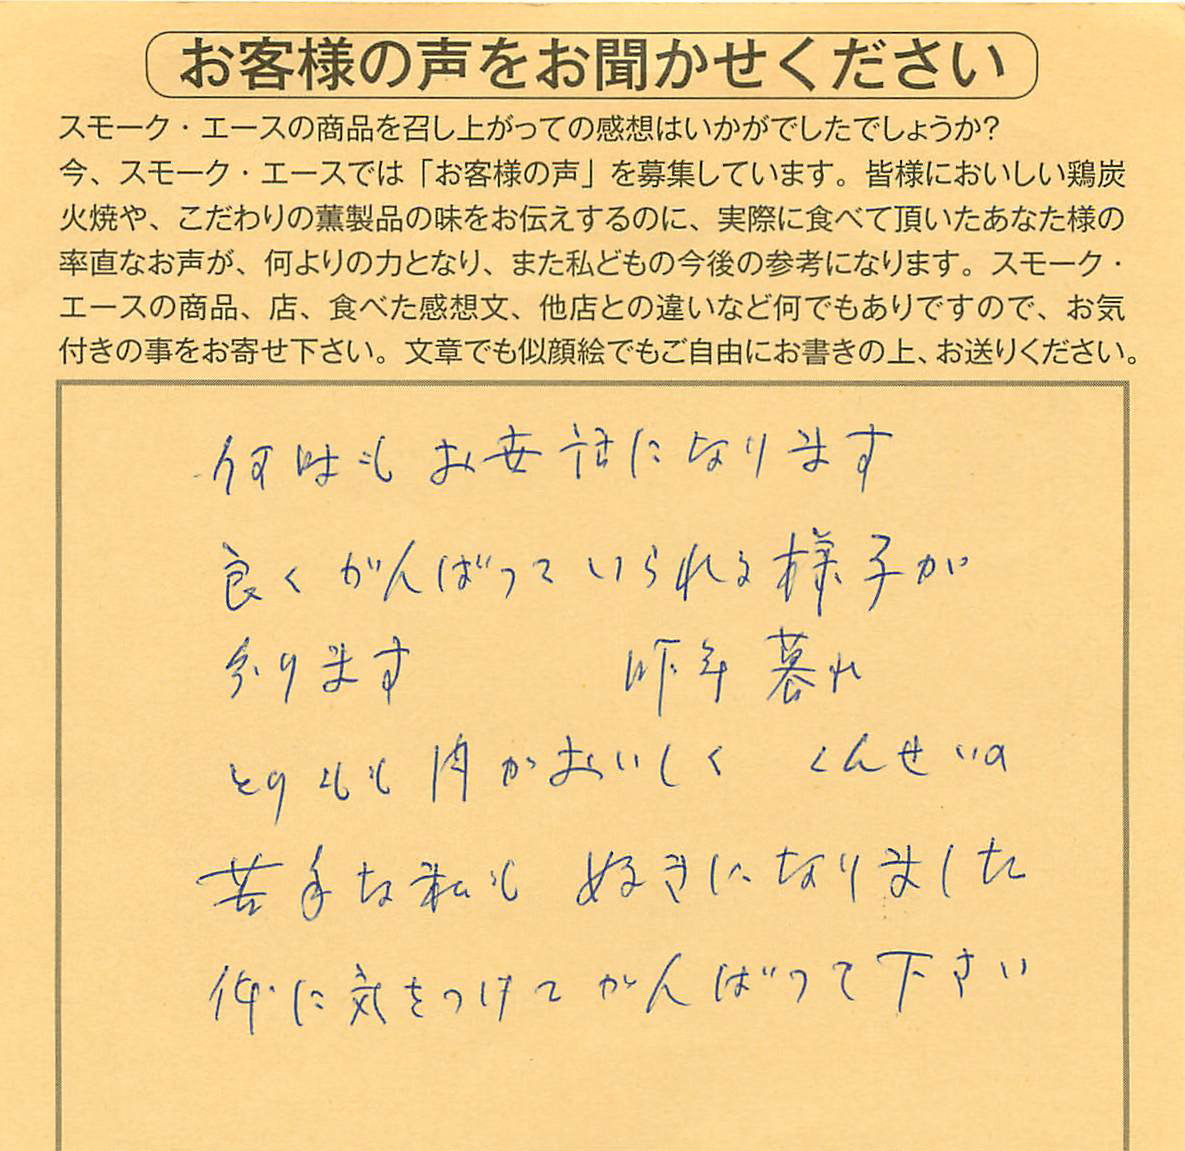 お客様の声をお聞かせください
スモーク・エースの商品を召し上がっての感想はいかがでしたでしょうか?
今、スモーク・エースでは「お客様の声」を募集しています。皆様においしい鶏炭
火焼や、こだわりの薫製品の味をお伝えするのに、実際に食べて頂いたあなた様の
率直なお声が、何よりの力となり、また私どもの今後の参考になります。スモーク・
エースの商品、店、食べた感想文、他店との違いなど何でもありですので、お気
付きの事をお寄せ下さい。文章でも似顔絵でもご自由にお書きの上、お送りください。
何時もお世話になります
良くがんばっていられる様子が
分ります 昨年暮れ
とりもも肉がおいしく くんせいの
苦手な私も 好きになりました
体に気をつけてがんばって下さい